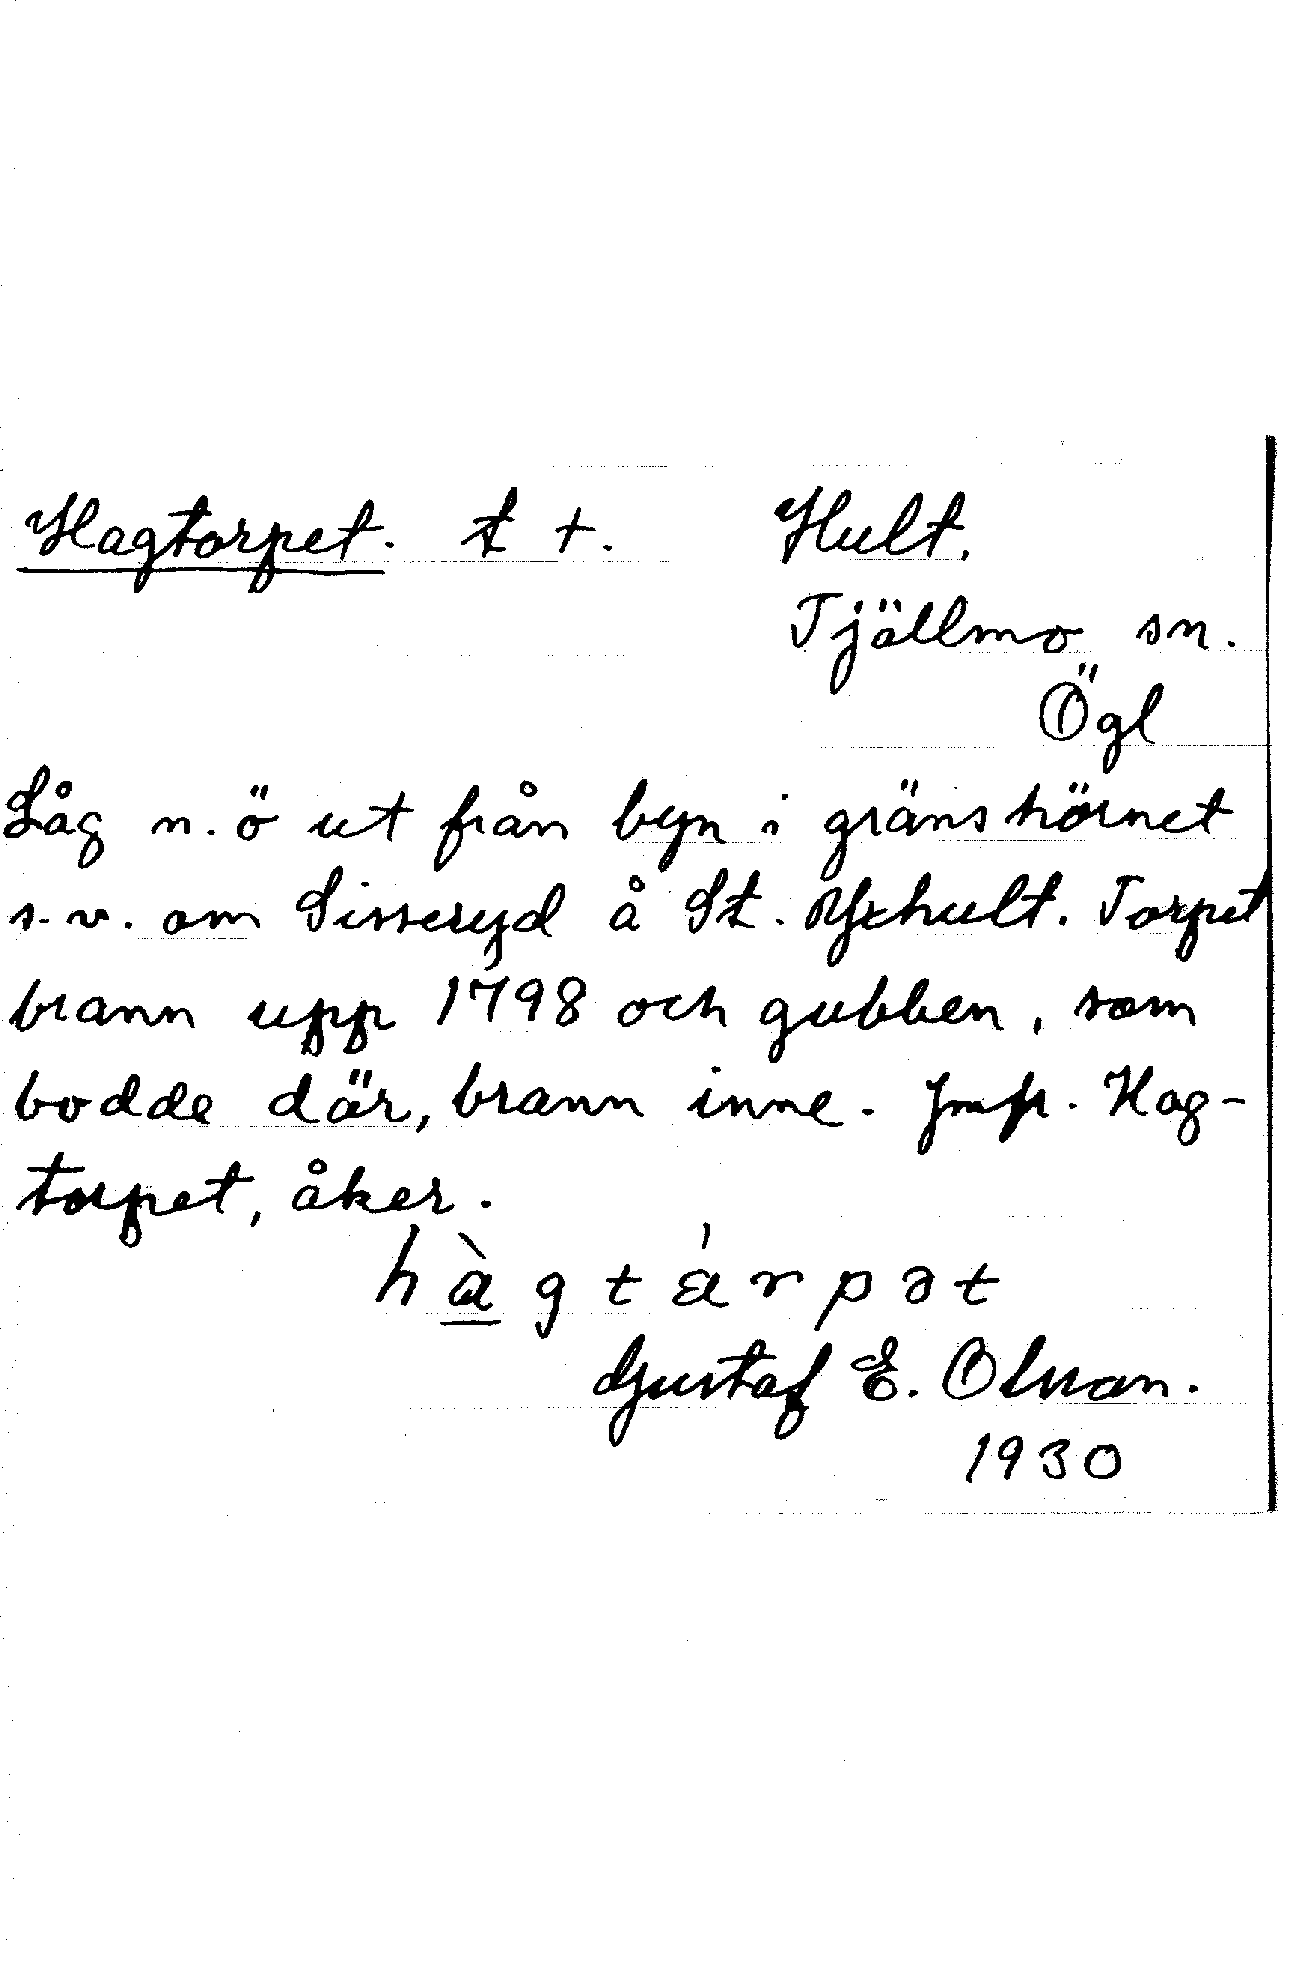 Hagtorpet. t +. Hult.
Tjällmo sn.
Ögl
Låg n. ö ut från byn i gränshörnet
s.v. om Sisseryd å St. Yxhult. Torpet
brann upp 1798 och gubben, som
bodde där, brann inne. Jmfr. Hag-
torpet, åker.
hàgtárpət
Gustaf E. Olsson.
1930